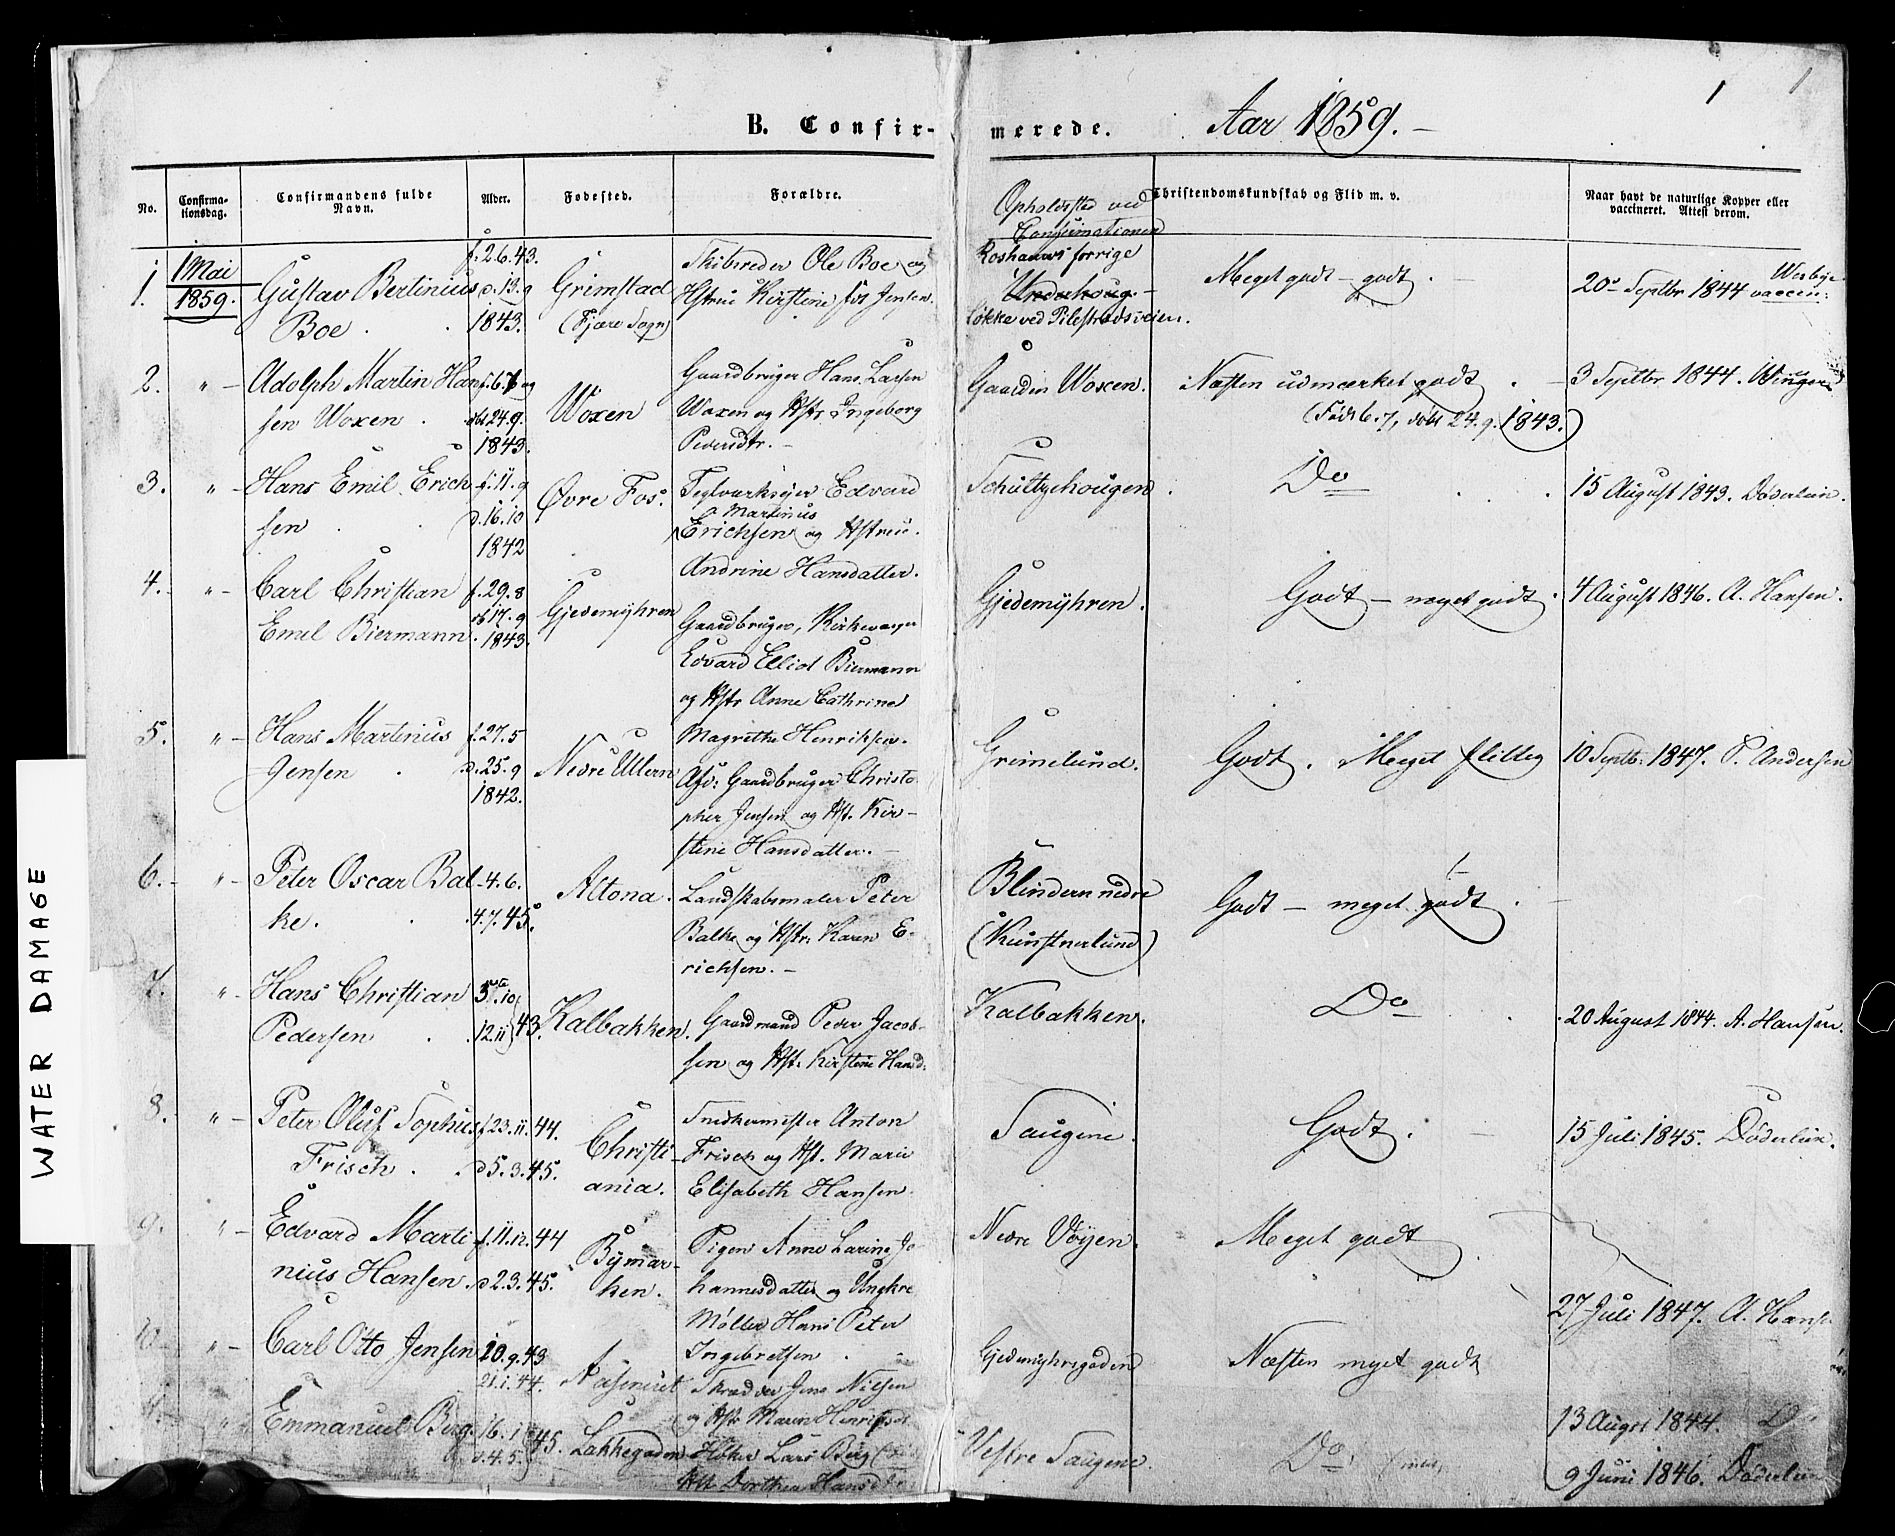 1
1
B. Confir-
merede.
Aar 1859.
No.
Confirma-
tionsdag.
Confirmandens fulde
Navn.
Alder.
Fødested.
Forældre.
Opholdssted ved
Confirmationen
Christendomskundskab og Flid m. v.
Naar havt de naturlige Kopper eller
vaccineret. Attest derom.
1.
1 Mai
1859.
Gustav Bertinius
Boe.
f. 2.6.43.
d. 13.9
1843.
Grimstad
(Fjære Sogn)
Skibsreder Ole Boe og
Hstru Kirstine f. Jensen.
forrige
Underhoug
Løkke ved Pilestrædsveien.
Meget godt - godt.
20 Septbr 1844
2.
" -
Adolph Martin Han
sen Woxen.
f. 6.7 og
dbt 24.9.
1843.
Woxen
Gaardbruger Hans Larsen
Woxen og Hstr. Ingeborg
Pedersdtr. -
Gaarden Woxen.
Næsten udmærket godt.
(Født 6.7, døbt 24.9. 1843.)
3 Septbr 1844.
3.
" -
Hans Emil Erich
sen
f. 11.9
d. 16.10
1842
Øvre Fos.
Teglværkseier Edvard
Martinus
Erichsen og Hstrue.
Andrine Hansdatter.
Schultzehougen.
Do
15 August 1843. Døderlein.
4.
" -
Carl Christian
Emil Biermann.
f. 29.8
db 17.9
1843.
Gjedemyhren
Gaardbruger, Kirkeværger
Edvard Elliot Biermann
og Hstr Anne Cathrine
Magrethe Henriksen.
Gjedemyhren.
Godt - meget godt.
4 August 1846. A. Hansen.
5.
" -
Hans Martinus
Jensen.
f. 27.5
d. 25.9
1842.
Nedre Ullern
Afd: Gaardbruger Christo-
pher Jensen og Hst. Kir-
stine Hansdatter. -
Grimelund.
Godt. Meget flittig
10 Septb: 1847. P. Andersen
6. -
" -
Peter Oscar Bal
ke.
4.6.
4.7.45.
Altona.
Landskabsmaler Peter
Balke og Hstr: Karen E-
richsen. -
Blindern nedre
(Kunstnerlund)
Godt - meget godt.
7.
" -
Hans Christian
Pedersen
12.11 43.
Kalbakken.
Gaardmand Peder Jacob-
sen og Hst: Kirstine Hansd:
Kalbakken.
Do
20 August 1844. A. Hansen.
8.
" -
Peter Oluf Sophus
Frisch.
f. 23.11.44.
d 5.3.45.
Christi-
ania.
Snedkermester Anton
Frisch og Hst. Marie
Elisabeth Hansen.
Saugene.
Godt.
15 Juli 1845. Døderlein.
9.
" -
Edvard Marti
nius Hansen.
f. 11.12.44
d 2.3.45.
Bymar-
ken.
Pigen Anne Larine Jo-
hannesdatter og Ungkrl
Møller Hans Peter
Ingebretsen.
Nedre Vøyen.
Meget godt.
27 Juli 1847. A. Hans
10.
" -
Carl Otto Jensen
10.9.43
21.1.44.
Skrædder Jens Nilsen
og Hstr Maren Henriksdt
Gjedemyhrsgaden
Næsten meget godt
13 Augst 1844. Do
11.
" -
Emmanuel Berg.
16.1
d. 4.5. 45.
Lakkegaden
Høker Lars Berg
Hst Dorthea Hansd
Vestre Saugene.
Do
9 Juni 1846. Døderlein
WATER DAMAGE